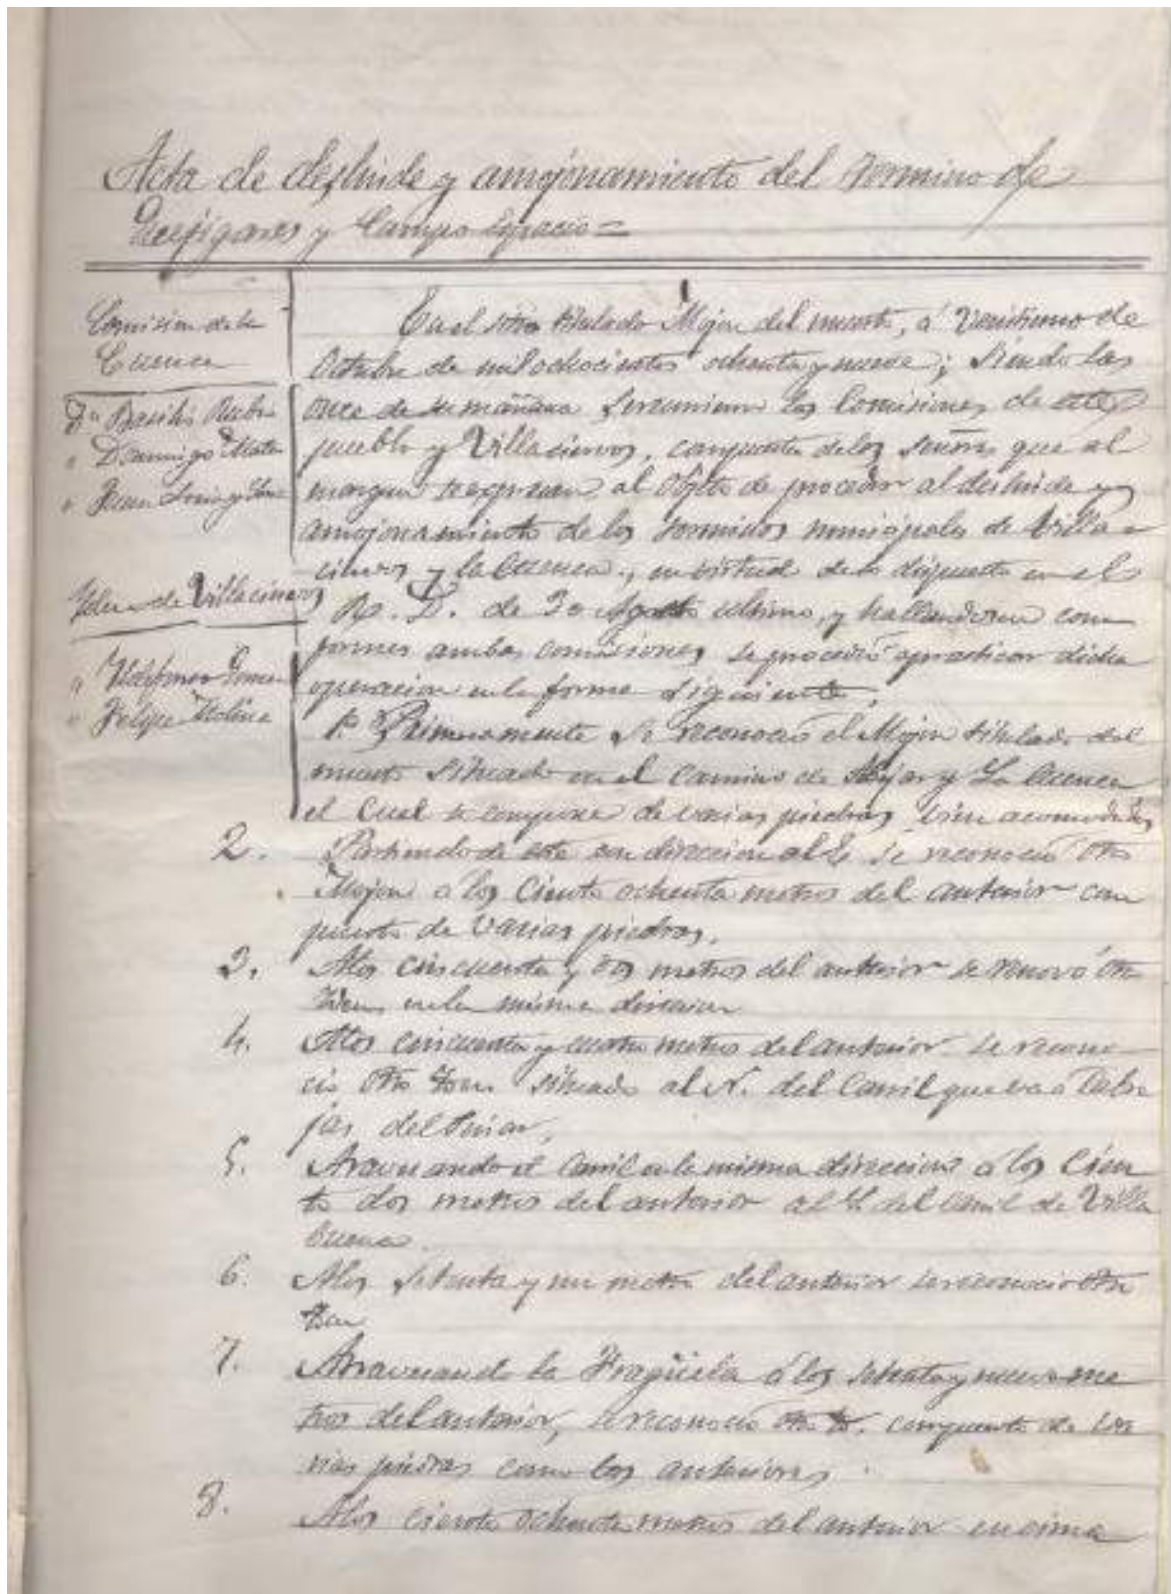 Acta de deslinde y amojonamiento del termino de
y Campo
Comision de la
Cuenca
Dn Basilio Rubio
" Domingo Mateo
" Juan
Idem de Villaciervos
" Ildefonso Gomez
" Felipe Molina
En el sitio titulado Mojon del muerto, á Veintiuno de
Octubre de mil ochocientos ochenta y nueve; siendo las
once de su mañana se reunieron las Comisiones de este
pueblo y Villaciervos, compuesta de los Señores que al
margen se expresan al objeto de proceder al deslinde y
amojonamiento de los terminos municipales de Villa-
ciervos y la Cuenca, en virtud de lo dispuesto en el
R. D. de 30 Agosto ultimo, y hallandose con
formes ambas comisiones se procedió a practicar dicha
operacion en la forma siguiente.
1º Primeramente se reconoció el Mojon titulado del
muerto situado en el Camino de y La Cuenca
el cual se compone de varias piedras bien acomodadas
2. Partiendo de este con direccion al se reconoció otro
Mojon a los Ciento ochenta metros del anterior com
puesto de varias piedras.
3. A los cincuenta y dos metros del anterior se renovó otro
Idem en la misma direccion
4. A los cincuenta y cuatro metros del anterior se recono-
ció otro Idem situado al N. del Carril que va a Cabre
jas del Pinar.
5. Atravesando el Carril en la misma direccion á los Cien
to dos metros del anterior al del Carril de Villa
buena.
6. A los setenta y un metros del anterior se reconoció otro
Idem
7. Atravesando la Fragüela á los setenta y nueve me
tros del anterior, se reconoció otro compuesto de va
rias piedras como los anteriores.
8. A los ciento ochenta metros del anterior encima